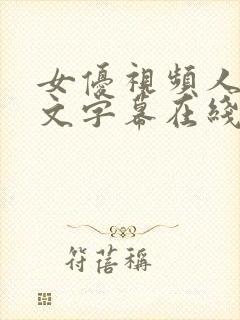 女優視頻人
文字幕在綫
符蓓稱